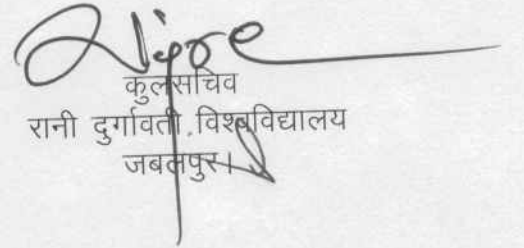 कुलसचिव
रानी दुर्गावती विश्वविद्यालय
जबलपुर।